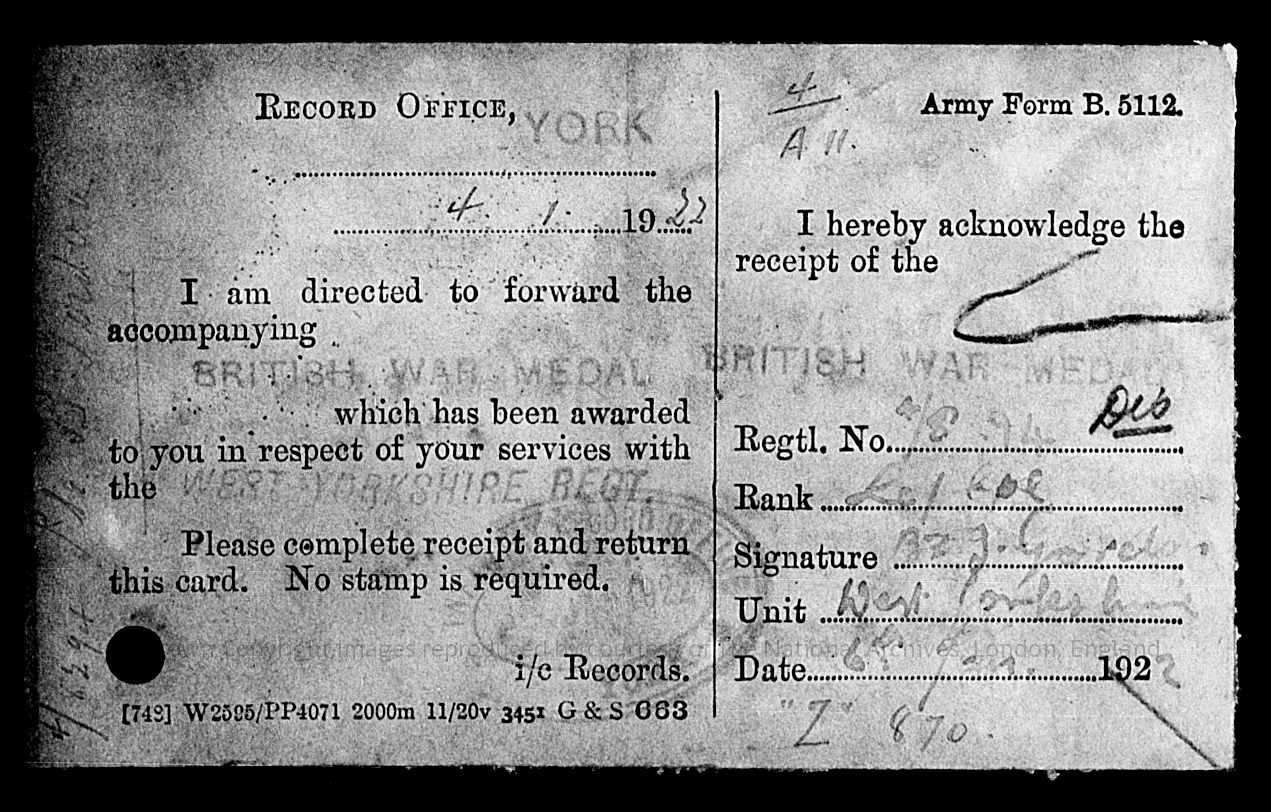 RECORD OFFICE, YORK
4. 1. 1922
I am directed to forward the
accompanying
BRITISH WAR MEDAL
which has been awarded
to you in respect of your services with
the WEST YORKSHIRE REGT.
Please complete receipt and return
this card. No stamp is required.
i/c Records.
[743] W2595/PP4071 2000m 11/20v 3451 G & S 663
4
A 11.
Army Form B. 5112.
I hereby acknowledge the
receipt of the
BRITISH WAR MEDAL
Regtl. No.
Rank
Signature
Unit West Yorkshire
Date 6 Jan. 1922
"Z" 870.
Copyright images reproduced by courtesy of The National Archives, London, England.